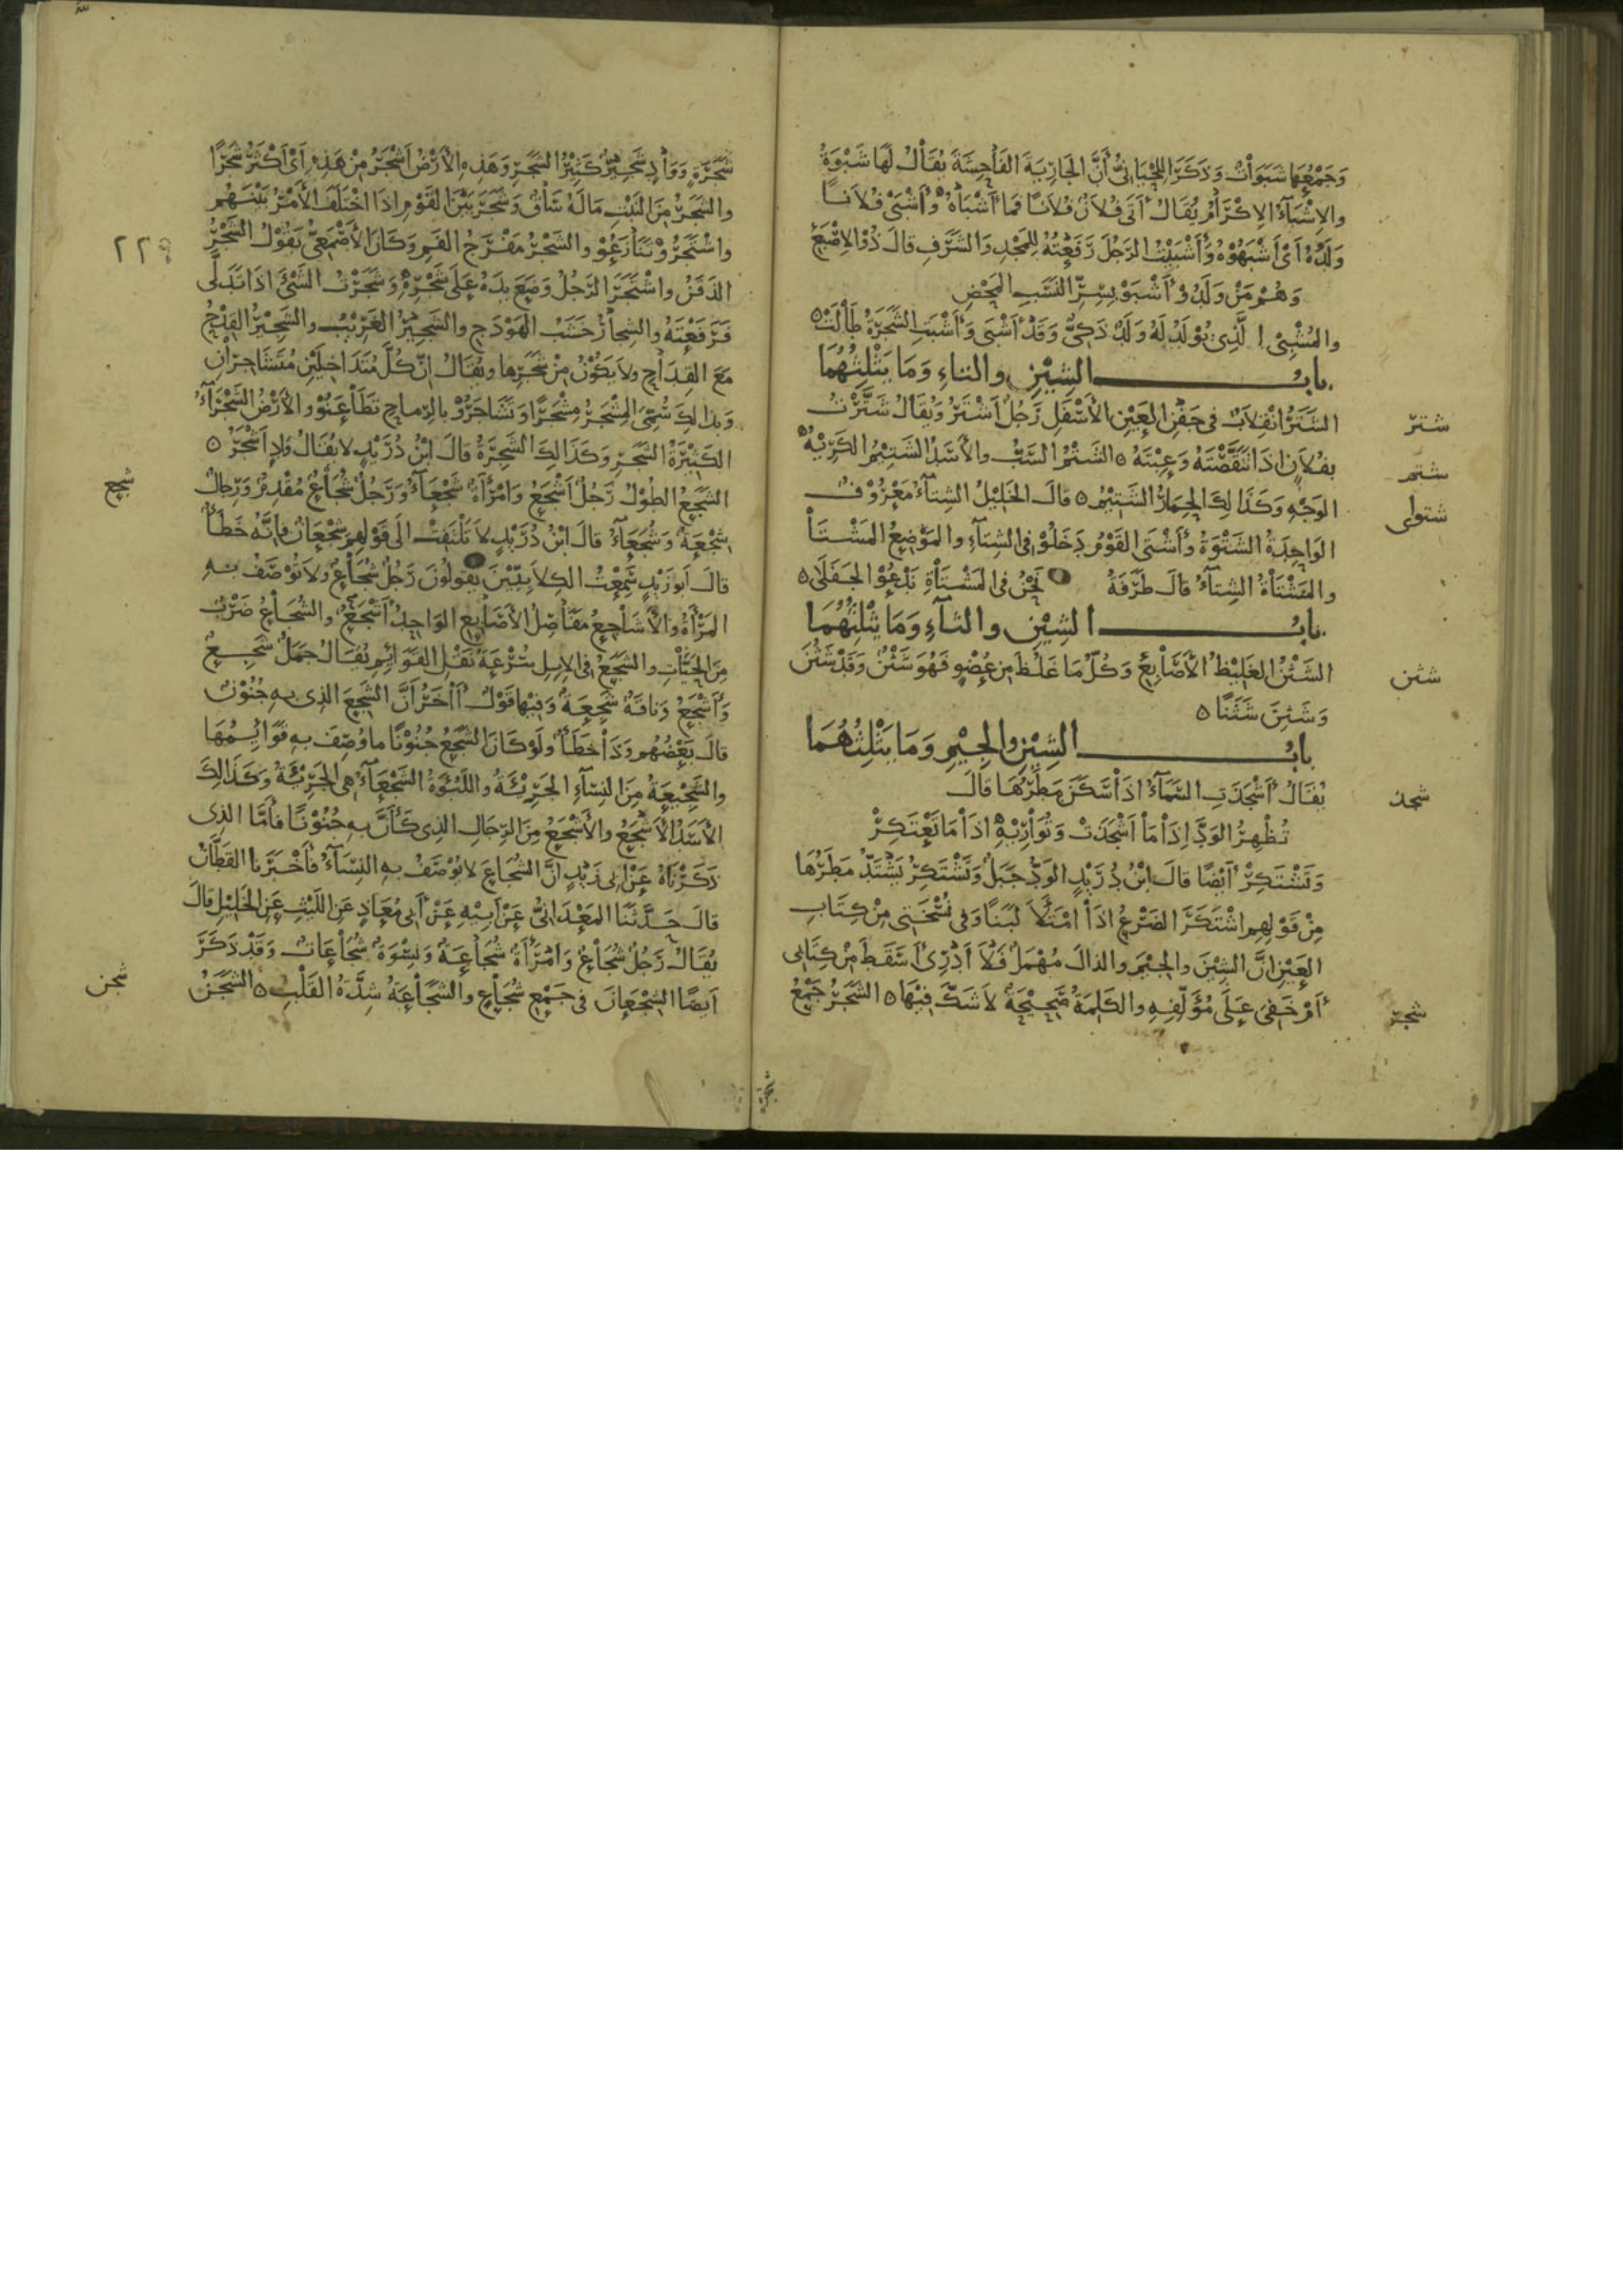 وَجَمْعُهَا شَبَوَاتٌ وَذَكَرَ اللِّحْيَانِيُّ أَنَّ الجَارِيَةَ الفَاحِشَةَ يُقَالُ لَهَا شَبْوَةُ
والإِشْبَاءُ الإِكْرَامُ يُقَالُ أَتَى فُلَانٌ فُلَانًا فَمَا أَشْبَاهُ وَأَشْبَى فُلَانًا
وَلَدُهُ أَيْ أَشْبَهُوهُ وَأَشْبَيْتُ الرَّجُلَ رَفَعْتُهُ لِلْمَجْدِ وَالشَّرَفِ قالَ ذُو الإِصْبَعِ
وَهُمْ مَنْ وَلَدُوْ أَشْبَوْ بِسِرِّ النَّسَبِ المَحْضِ
والمُشْبِى الَّذِى يُوْلَدُ لَهُ وَلَدٌ ذَكِيٌّ وَقَدْ أَشْبَى وَأَشْبَتِ الشَّجَرَةُ طَالَتْ ٥
بابُ الشِيْنِ والتاءِ وَمَا يَثْلِثُهُمَا
شتر
الشَّتَرُ انْقِلَابٌ فى جَفْنِ العَيْنِ الأَسْفَلِ رَجُلٌ أَشْتَرُ وَيُقَالُ شَتَّرْتُ
شتم
بِفُلَانٍ اذَا تَنَقَّصْتَهُ وَعِبْتَهُ ٥ الشَتْمُ السَّبُّ والأَسَدُ الشَتِيْمُ الكَرِيْهُ
شتوى
الوَجْهِ وَكَذَالِكَ الحِمَارُ الشَّتِيْمُ ٥ قالَ الخَلِيْلُ الشِتَاءُ مَعْرُوْفٌ
الوَاحِدَةُ الشَتْوَةُ وَأَشْتَى القَوْمُ دَخَلُوْ فِى الشِتَاءِ والمَوْضِعُ المَشْتَا
والمَشْتَاةُ الشِتَاءُ قالَ طَرَفَةُ نَحْنُ فى المَشْتَاةِ نَدْعُوْ الجَفَلَى ٥
بابُ الشِيْنِ والثاءِ وَمَا يَثْلِثُهُمَا
شثن
الشَثْنُ الغَلِيْظُ الأَصَابِعِ وَكُلُّ مَا غَلُظَ مِن عُضْوٍ فَهُوَ شَثْنٌ وَقَدْ شَثُنَ
وَشَثِنَ شَثَنًا ٥
بابُ الشِيْنِ والجِيْمِ وَمَا يَثْلِثُهُمَا
شجذ
يُقَالُ أَشْجَذَتِ السَّمَاءُ اذَا سَكَنَ مَطَرُهَا قالَ
تُظْهِرُ الوَدَّ إِذَا مَا أَشْجَذَتْ وَتُوَارِيْهِ اذَا مَا تَعْتَكِرْ
وَتَشْتَكِرْ أَيْضًا قالَ ابْنُ دُرَيْدٍ الوَدُّ جَبَلٌ وَتَشْتَكِرْ يَشْتَدُّ مَطَرُهَا
مِنْ قَوْلِهِم اشْتَكَرَ الضَرْعُ اذَا امْتَلَأَ لَبَنًا وَفِى نُسْخَتِى مِنْ كِتَابِ
العَيْنِ انَّ الشِيْنَ والجِيْمَ والذالَ مُهْمَلٌ فَلَا أَدْرِى أَسَقَطَ مِنْ كِتَابِى
شجر
أَمْ خَفِىَ عَلَى مُؤَلِّفِهِ والكَلِمَةُ صَحِيْحَةٌ لَا شَكَّ فِيْهَا ٥ الشَجَرُ جَمْعُ
شجرة
شَجَرَةٍ وَوَادٍ شَجِيْرٌ كَثِيْرُ الشَجَرِ وَهَذِهِ الأَرْضُ أَشْجَرُ مِنْ هَذِهِ أَيْ أَكْثَرُ شَجَرًا
والشَجَرُ مِنَ النَبْتِ مَا لَهُ سَاقٌ وَشَجَرَ بَيْنَ القَوْمِ اذَا اخْتَلَفَ الأَمْرُ بَيْنَهُم
٢٢٩
واشْتَجَرُوْ تَنَازَعُوْ والشَجْرُ مَفْرَجُ الفَمِ وَكَانَ الأَصْمَعِىُّ يَقُوْلُ الشَجْرُ
الذَقَنُ واشْتَجَرَ الرَّجُلُ وَضَعَ يَدَهُ عَلَى شَجْرِهِ وَشَجَرْتُ الشَّىْءَ اذَا تَدَلَّى
فَرَفَعْتَهُ والشِجَارُ خَشَبُ الهَوْدَجِ والشَجِيْرُ الغَرِيْبُ والشَجِيْرُ القِدْحُ
مَعَ القِدَاحِ وَلَا يَكُوْنُ مِنْ شَجَرِها ويُقَالُ انَّ كُلَّ مُتَدَاخِلَيْنِ مُتَشَاجِرَانِ
وَبِذَالِكَ سُمِّىَ المِشْجَرُ مِشْجَرًا وَتَشَاجَرُوْ بِالرِّمَاحِ تَطَاعَنُوْ والأَرْضُ الشَجْرَاءُ
الكَثِيْرَةُ الشَجَرِ وَكَذَالِكَ الشَجِرَةُ قالَ ابْنُ دُرَيْدٍ لَا يُقَالُ وَادٍ أَشْجَرُ ٥
شجع
الشَجَعُ الطُوْلُ رَجُلٌ أَشْجَعُ وَامْرَأَةٌ شَجْعَاءُ وَرَجُلٌ شُجَاعٌ مُقْدِمٌ وَرِجَالٌ
شِجْعَةٌ وَشُجَعَاءُ قالَ ابْنُ دُرَيْدٍ لَا تَلْتَفِتْ الَى قَوْلِهِم شُجْعَانٌ فَإِنَّهُ خَطَأٌ
قالَ أَبُو زَيْدٍ سَمِعْتُ الكِلَابِيِّيْنَ يَقُولُوْنَ رَجُلٌ شُجَاعٌ وَلَا تُوْصَفُ بِهِ
المَرْأَةُ والأَشَاجِعُ مَفَاصِلُ الأَصَابِعِ الوَاحِدُ أَشْجَعُ والشُجَاعُ ضَرْبٌ
مِنَ الحَيَّاتِ والشَجَعُ فى الابِلِ سُرْعَةُ نَقْلِ القَوَائِمِ يُقَالُ جَمَلٌ شَجِعٌ
وَأَشْجَعُ وَنَاقَةٌ شَجِعَةٌ وَفِيْهَا قَوْلٌ آخَرُ أَنَّ الشَجِعَ الَّذِى بِهِ جُنُوْنٌ
قالَ بَعْضُهُم وَذَا خَطَأٌ وَلَوْ كَانَ الشَجَعُ جُنُوْنًا مَا وُصِفَ بِهِ قَوَائِمُهَا
والشَجِيْعَةُ مِنَ النِسَاءِ الجَرِيْئَةُ واللَّبُؤَةُ الشَجْعَاءُ هِى الجَرِيْئَةُ وَكَذَالِكَ
الأَسَدُ الأَشْجَعُ والأَشْجَعُ مِنَ الرِّجَالِ الَّذِى كَأَنَّ بِهِ جُنُوْنًا فَأَمَّا الَّذِى
ذَكَرْنَاهُ عَنْ أَبِى زَيْدٍ انَّ الشُجَاعَ لَا تُوْصَفُ بِهِ النِسَاءُ فَأَخْبَرَنا القَطَّانُ
قالَ حَدَّثَنَا المَعْدَانِىُّ عَنْ أَبِيْهِ عَنْ أَبِى مُعَاذٍ عَنِ اللَّيْثِ عَنِ الخَلِيْلِ قالَ
يُقَالُ رَجُلٌ شُجَاعٌ وَامْرَأَةٌ شُجَاعَةٌ وَنِسْوَةٌ شُجَاعَاتٌ وَقَدْ ذَكَرَ
شجن
أَيْضًا الشُجْعَانَ فى جَمْعِ شُجَاعٍ والشَجَاعَةُ شِدَّةُ القَلْبِ ٥ الشَجَنُ